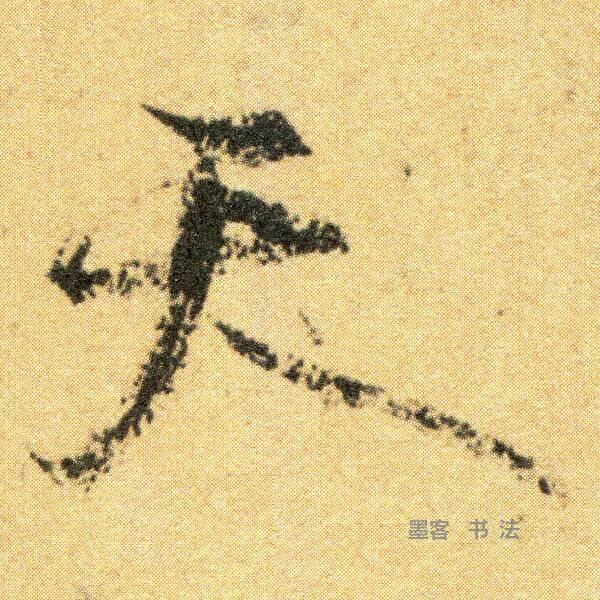 天
墨客 书法